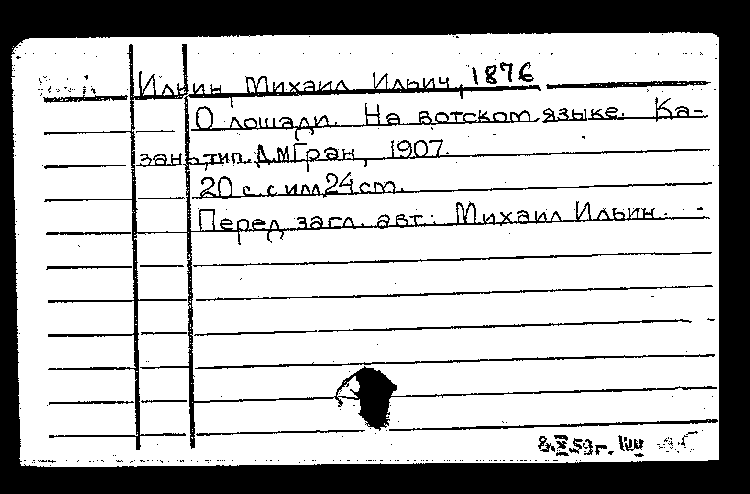 Ильин, Михаил Ильич, 1876
О лошади. На вотском языке. Ка-
зань, тип. Д.М.Гран, 1907.
20 с. с илл. 24 cm.
Перед загл. авт.: Михаил Ильин. -
59г.